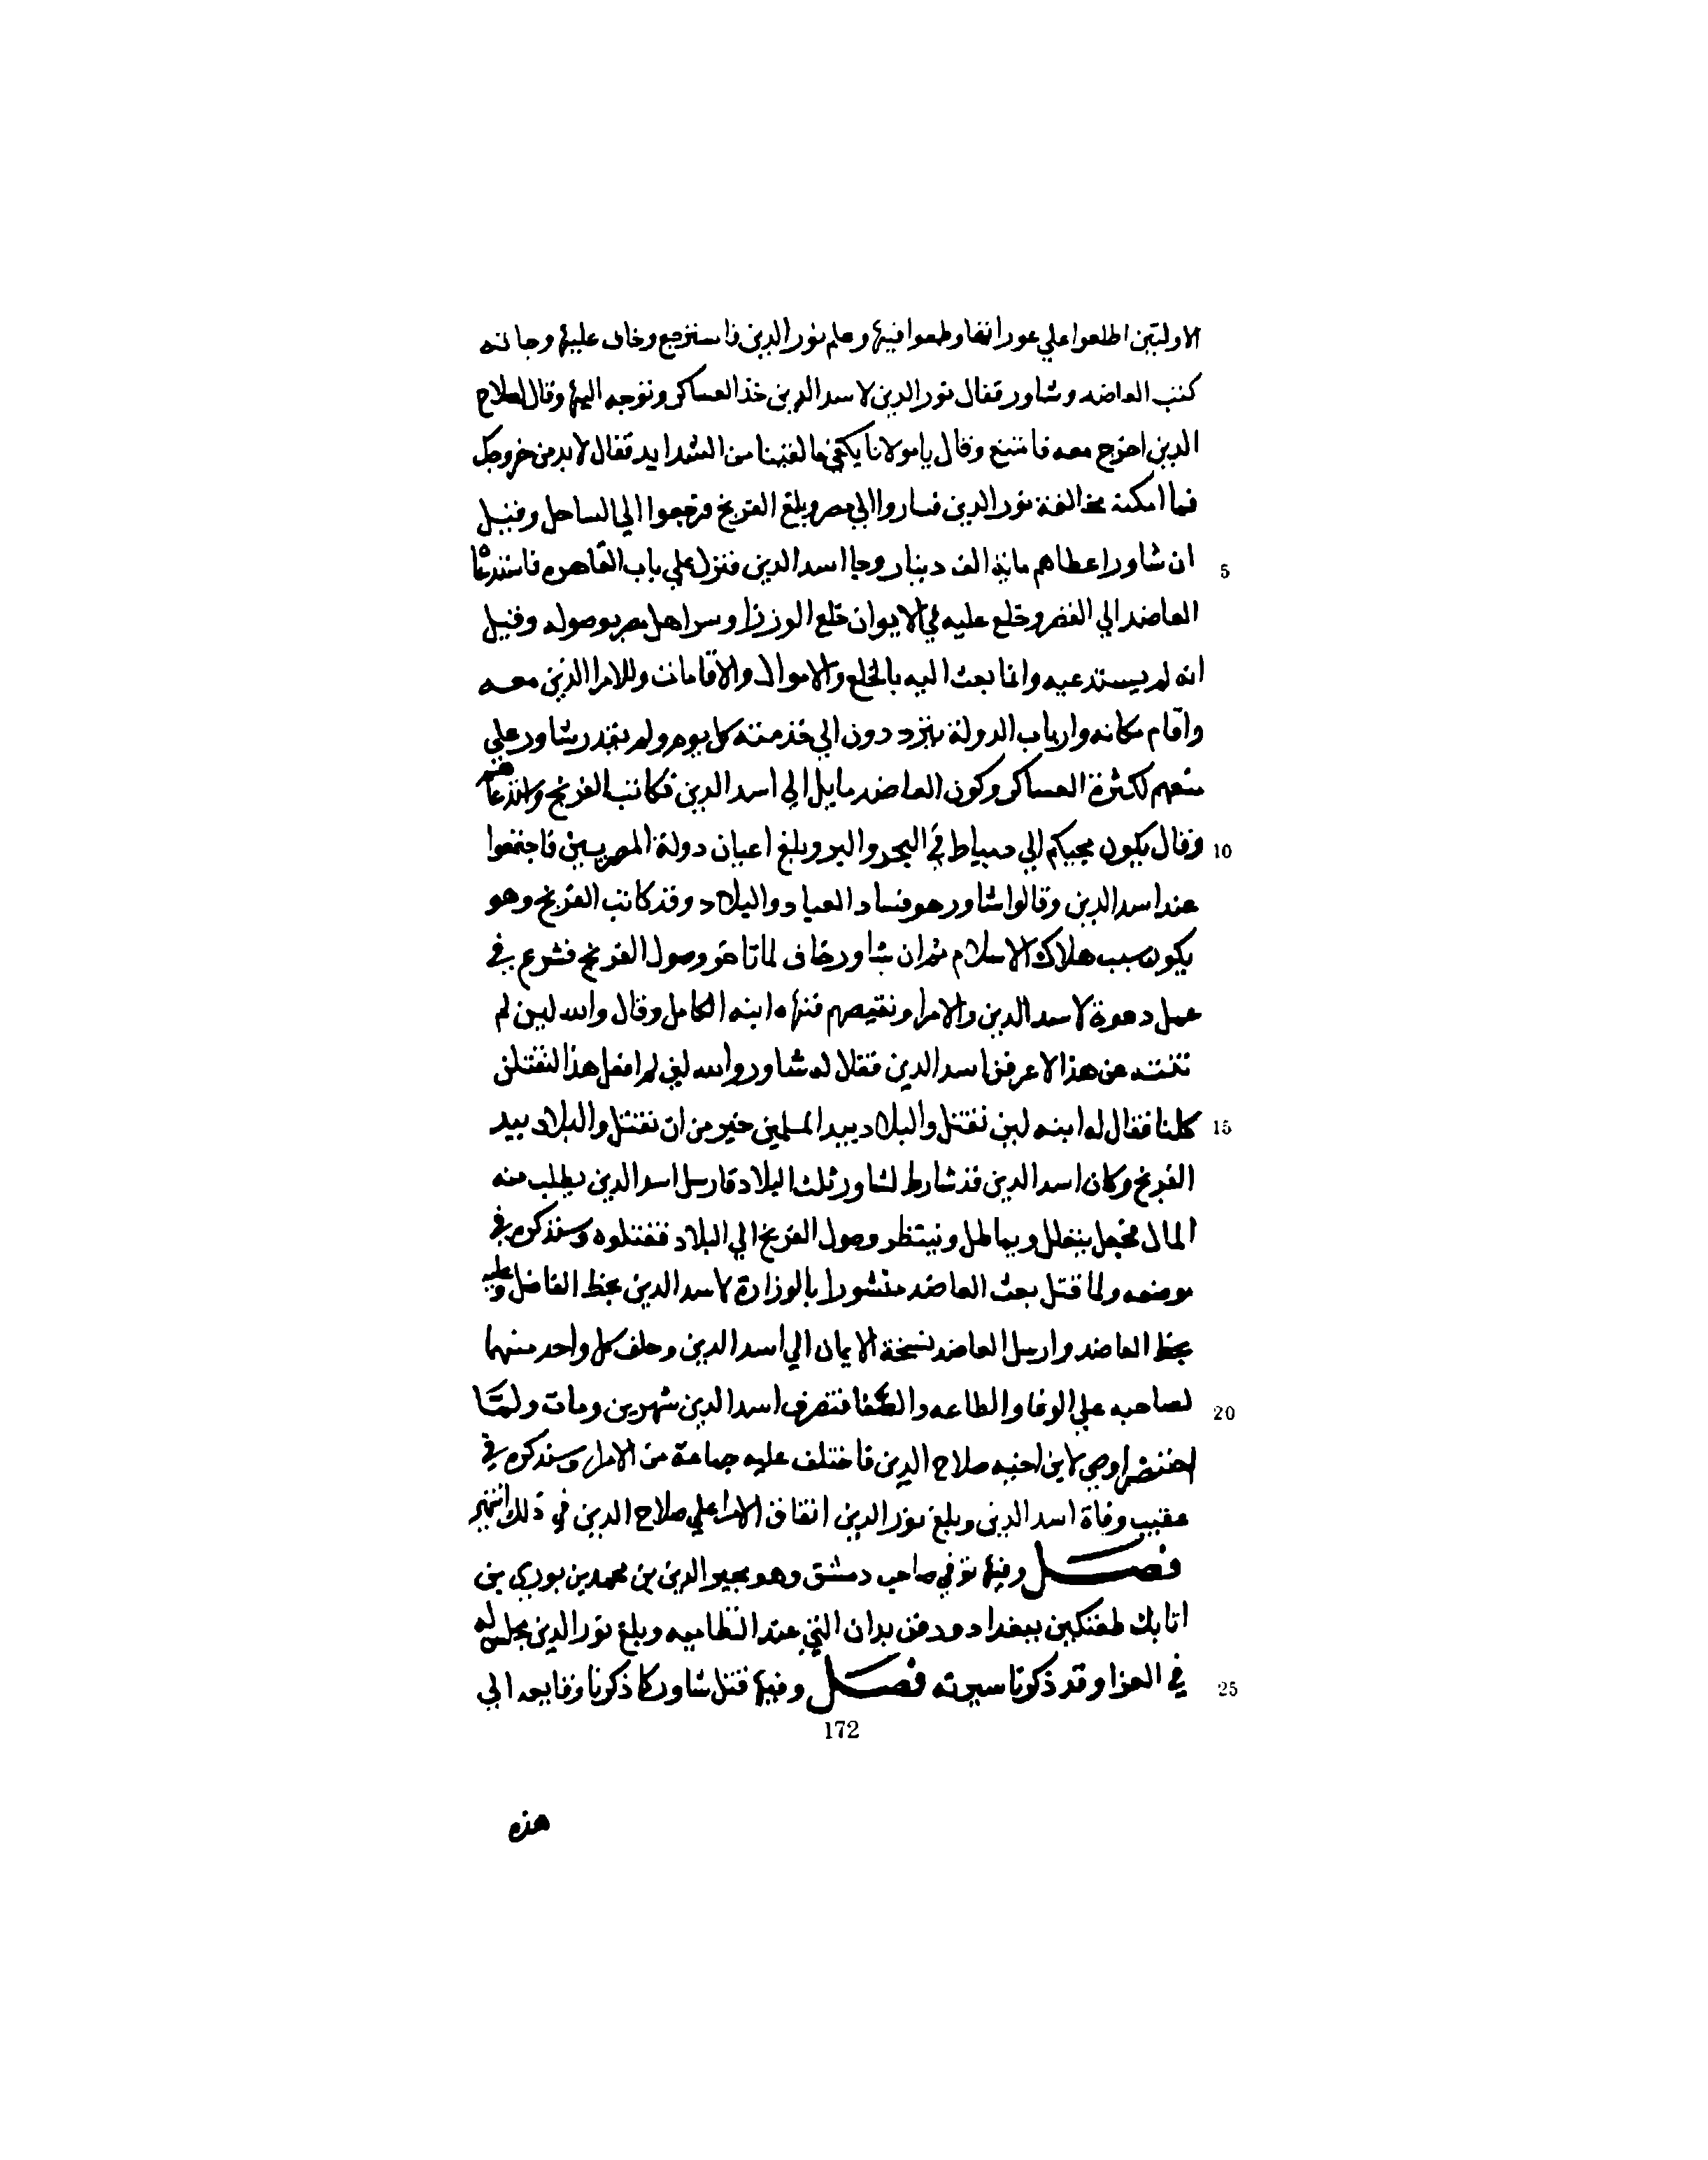 الاولتين اطلعوا علي عوراتها وطمعوا فيها وعلم نور الدين فاسترجع وخاف عليها وجاته
كتب العاضد وشاور فقال نور الدين لاسد الدين خذ العساكر وتوجه اليها وقال لصلاح
الدين اخرج معه فامتنع وقال يا مولانا يكفي ما لقينا من الشدايد فقال لا بد من خروجك
فما امكنه مخالفة نور الدين فساروا الي مصر وبلغ الفرنج فرجعوا الي الساحل وقيل
ان شاور اعطاهم ماية الف دينار وجا اسد الدين فنزل علي باب القاهره فاستدعاه
5
العاضد الي القصر وخلع عليه في الايوان خلع الوزرا وسر اهل مصر بوصوله وقيل
انه لم يستدعيه وانما بعث اليه بالخلع والاموال والاقامات وللامرا الذين معه
واقام مكانه وارباب الدولة يترددون الي خدمته كل يوم ولم يقدر شاور علي
منعهم لكثرة العساكر وكون العاضد مايل الي اسد الدين فكاتب الفرنج واستدعاهم
وقال يكون مجيكم الي دمياط في البحر والبر وبلغ اعيان دولة المصريين فاجتمعوا
10
عند اسد الدين وقالوا شاور هو فساد العباد والبلاد وقد كاتب الفرنج وهو
يكون سبب هلاك الاسلام ثم ان شاور خاف لما تاخر وصول الفرنج فشرع في
عمل دعوة لاسد الدين والامرا ويقبضهم فنهاه ابنه الكامل وقال والله لين لم
تنته عن هذا لاعرفن اسد الدين فقال له شاور والله لين لم افعل هذا لنقتلن
كلنا فقال له ابنه لين نقتل والبلاد بيد المسلمين خير من ان نقتل والبلاد بيد
15
الفرنج وكان اسد الدين قد شارط لشاور ثلث البلاد فارسل اسد الدين يطلب منه
المال فجعل يتعلل ويماطل وينتظر وصول الفرنج الي البلاد فقتلوه وسنذكره في
موضعه ولما قتل بعث العاضد منشورا بالوزارة لاسد الدين بخط الفاضل وعليه
بخط العاضد وارسل العاضد نسخة الايمان الي اسد الدين وحلف كل واحد منهما
لصاحبه علي الوفا والطاعه والصفا فتصرف اسد الدين شهرين ومات ولما
20
احتضر اوصي لابن اخيه صلاح الدين فاختلف عليه جماعة من الامرا وسنذكره في
عقيب وفاة اسد الدين وبلغ نور الدين اتفاق الامرا علي صلاح الدين في ذلك
فصل وفيها توفي صاحب دمشق وهو مجير الدين بن محمد بن بوري بن
اتابك طغتكين ببغداد ودفن بداره التي عند النظاميه وبلغ نور الدين فجلس له
في العزا وقد ذكرنا سيرته فصل وفيها قتل شاور كما ذكرنا وقايعه الي
25
172
هذه